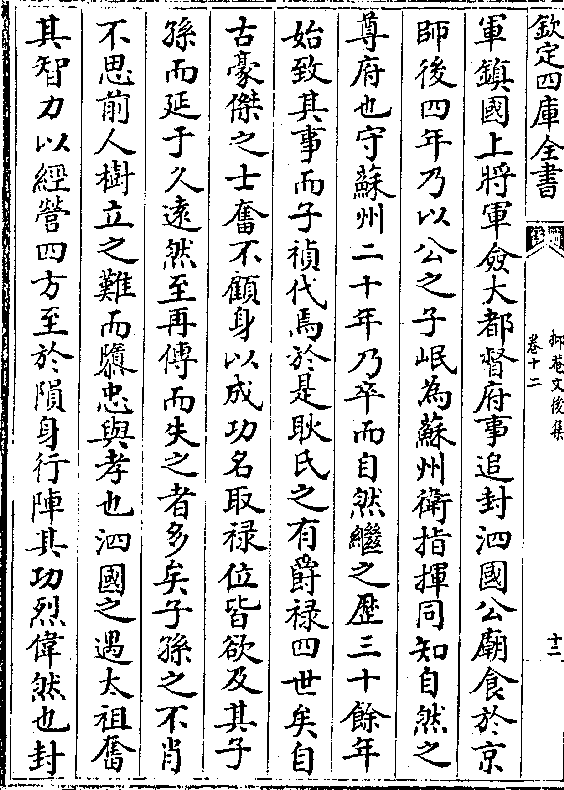 欽定四庫全書
抑菴文後集
卷十二
十二
軍鎮國上將軍僉大都督府事追封泗國公廟食於京
師後四年乃以公之子岷為蘇州衛指揮同知自然之
尊府也守蘇州二十年乃卒而自然繼之歷三十餘年
始致其事而子禎代焉於是耿氏之有爵禄四世矣自
古豪傑之士奮不顧身以成功名取禄位皆欲及其子
孫而延于久遠然至再傳而失之者多矣子孫之不肖
不思前人樹立之難而隳忠與孝也泗國之遇太祖奮
其智力以經營四方至於隕身行陣其功烈偉然也封